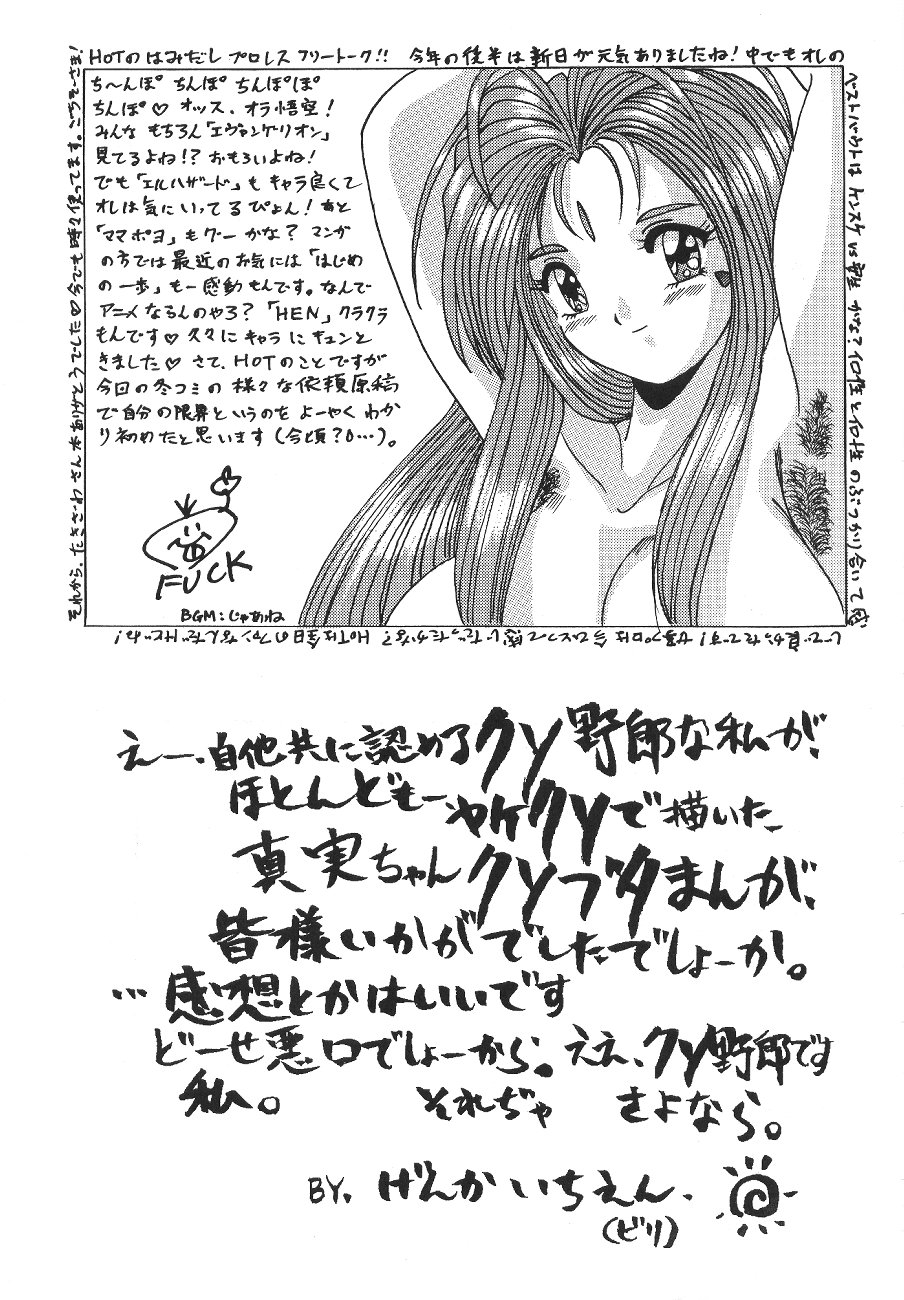 HOTのはみだしプロレスフリートーク!! 今年の後半は新日が元気ありましたね!中でもオレの
ベストバウトは
かな?個性と個性のぶつかり合いで
それから、たきざわさん本ありがとうでした♡今でも時々使ってます。ごちそーさま!
ち〜んぽ ちんぽ ちんぽぽ
ちんぽ♡ オッス、オラ悟空!
みんな もちろん「エヴァンゲリオン」
見てるよね!? おもろいよね!
でも「エルハザード」も キャラ良くて
オレは気にいってるぴょん!あと
「ママポヨ」もグーかな? マンガ
の方では最近のお気には「はじめ
の一歩」も一感動もんです。なんで
アニメなるんのやろ?「HEN」クラクラ
もんです♡ 久々にキャラにキュンと
きました♡ さて、HOTのことですが
今回の冬コミの様々な依頼原稿
で自分の限界というのをよーやくわか
り初めたと思います(今頃?0…)。
FUCK
BGM:じゃあね
えー、自他共に認めるクソ野郎な私が、
ほとんどもーヤケクソで描いた、
真実ちゃんクソブタまんが、
皆様いかがでしたでしょーか。
…感想とかはいいです
どーせ悪口でしょーから。ええ、クソ野郎です
私。 それぢゃ さよなら。
BY. げんかいちえん.
(ビリ)